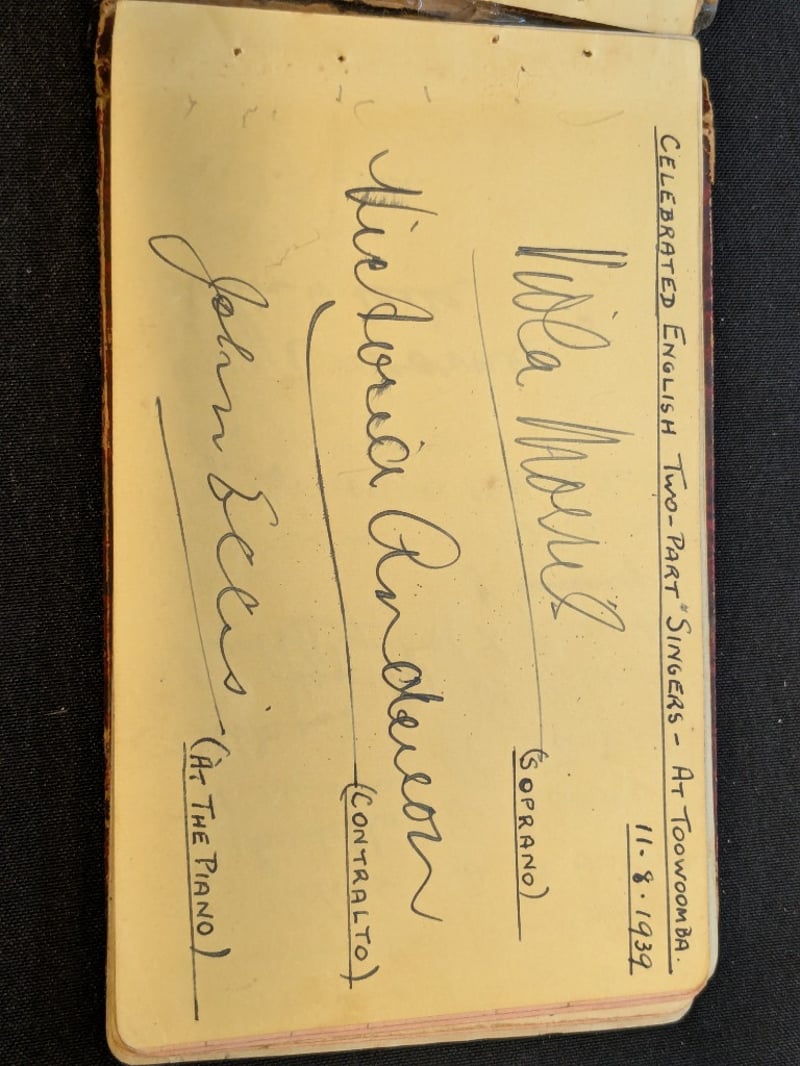 CELEBRATED ENGLISH TWO-PART "SINGERS - AT TOOWOOMBA.
11.8.1939
Viola Morris
(SOPRANO)
Victoria Anderson
(CONTRALTO)
John Eccles
(AT THE PIANO)